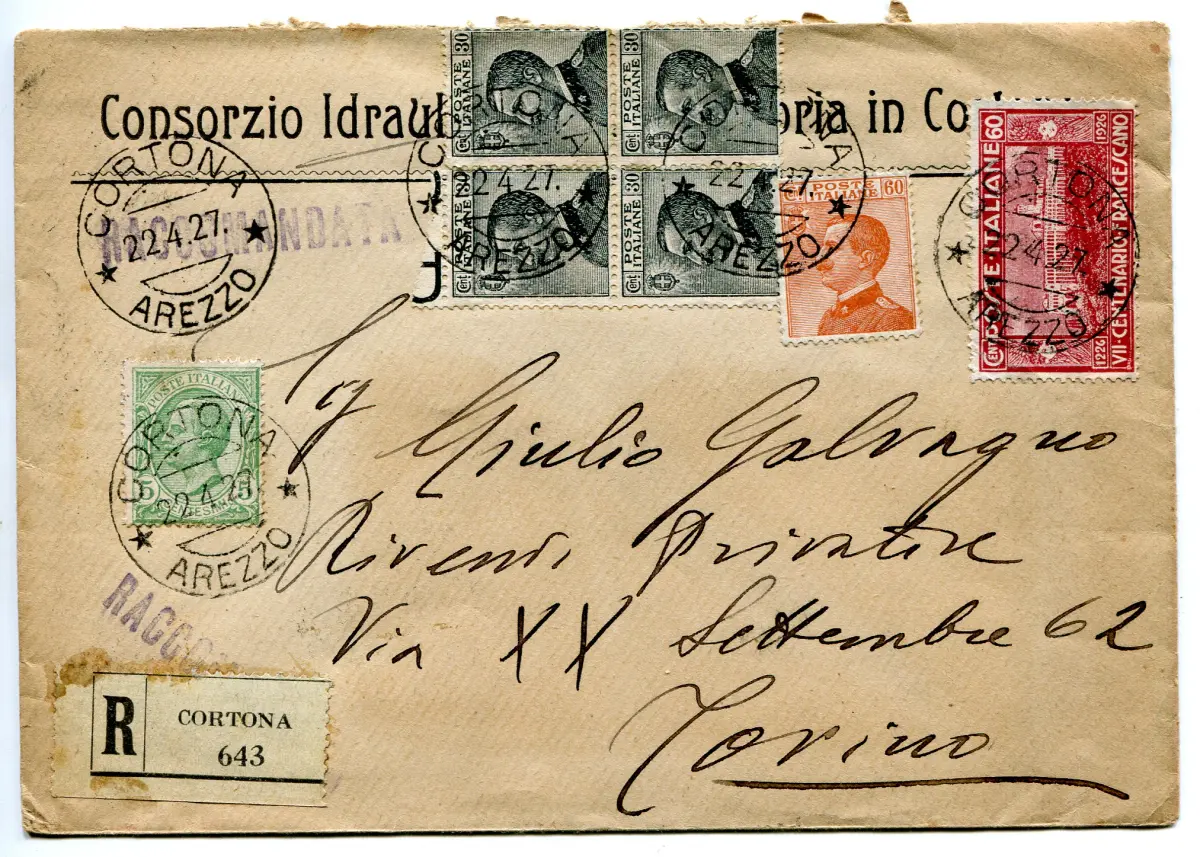 Consorzio oria in
RACCOMANDATA
CORTONA
22.4.27.
AREZZO
Cent. 30
POSTE ITALIANE
Cent. 30
POSTE ITALIANE
Cent. 30
POSTE ITALIANE
Cent. 30
POSTE ITALIANE
CORTONA
22.4.27.
AREZZO
CORTONA
22.4.27.
AREZZO
POSTE ITALIANE
60
CENT. POSTE ITALIANE 60
1226 1926
VII·CENTENARIO FRANCESCANO
CORTONA
22.4.27.
AREZZO
POSTE ITALIANE
5 5
CORTONA
22.4.27
AREZZO
Sig Giulio Galvagno
Rivendi Privative
Via XX Settembre 62
Torino
R
CORTONA
643